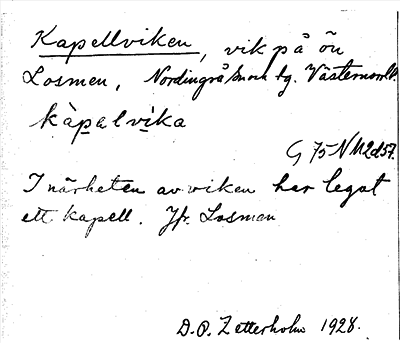 Kapellviken, vik på ön
Losmen, Nordingrå snok tg. Västernorrl.
kàpalvìka
G 75 N M2d57.
I närheten av viken har legat
ett kapell. Jfr. Losman
D.P. Zetterholm 1928.